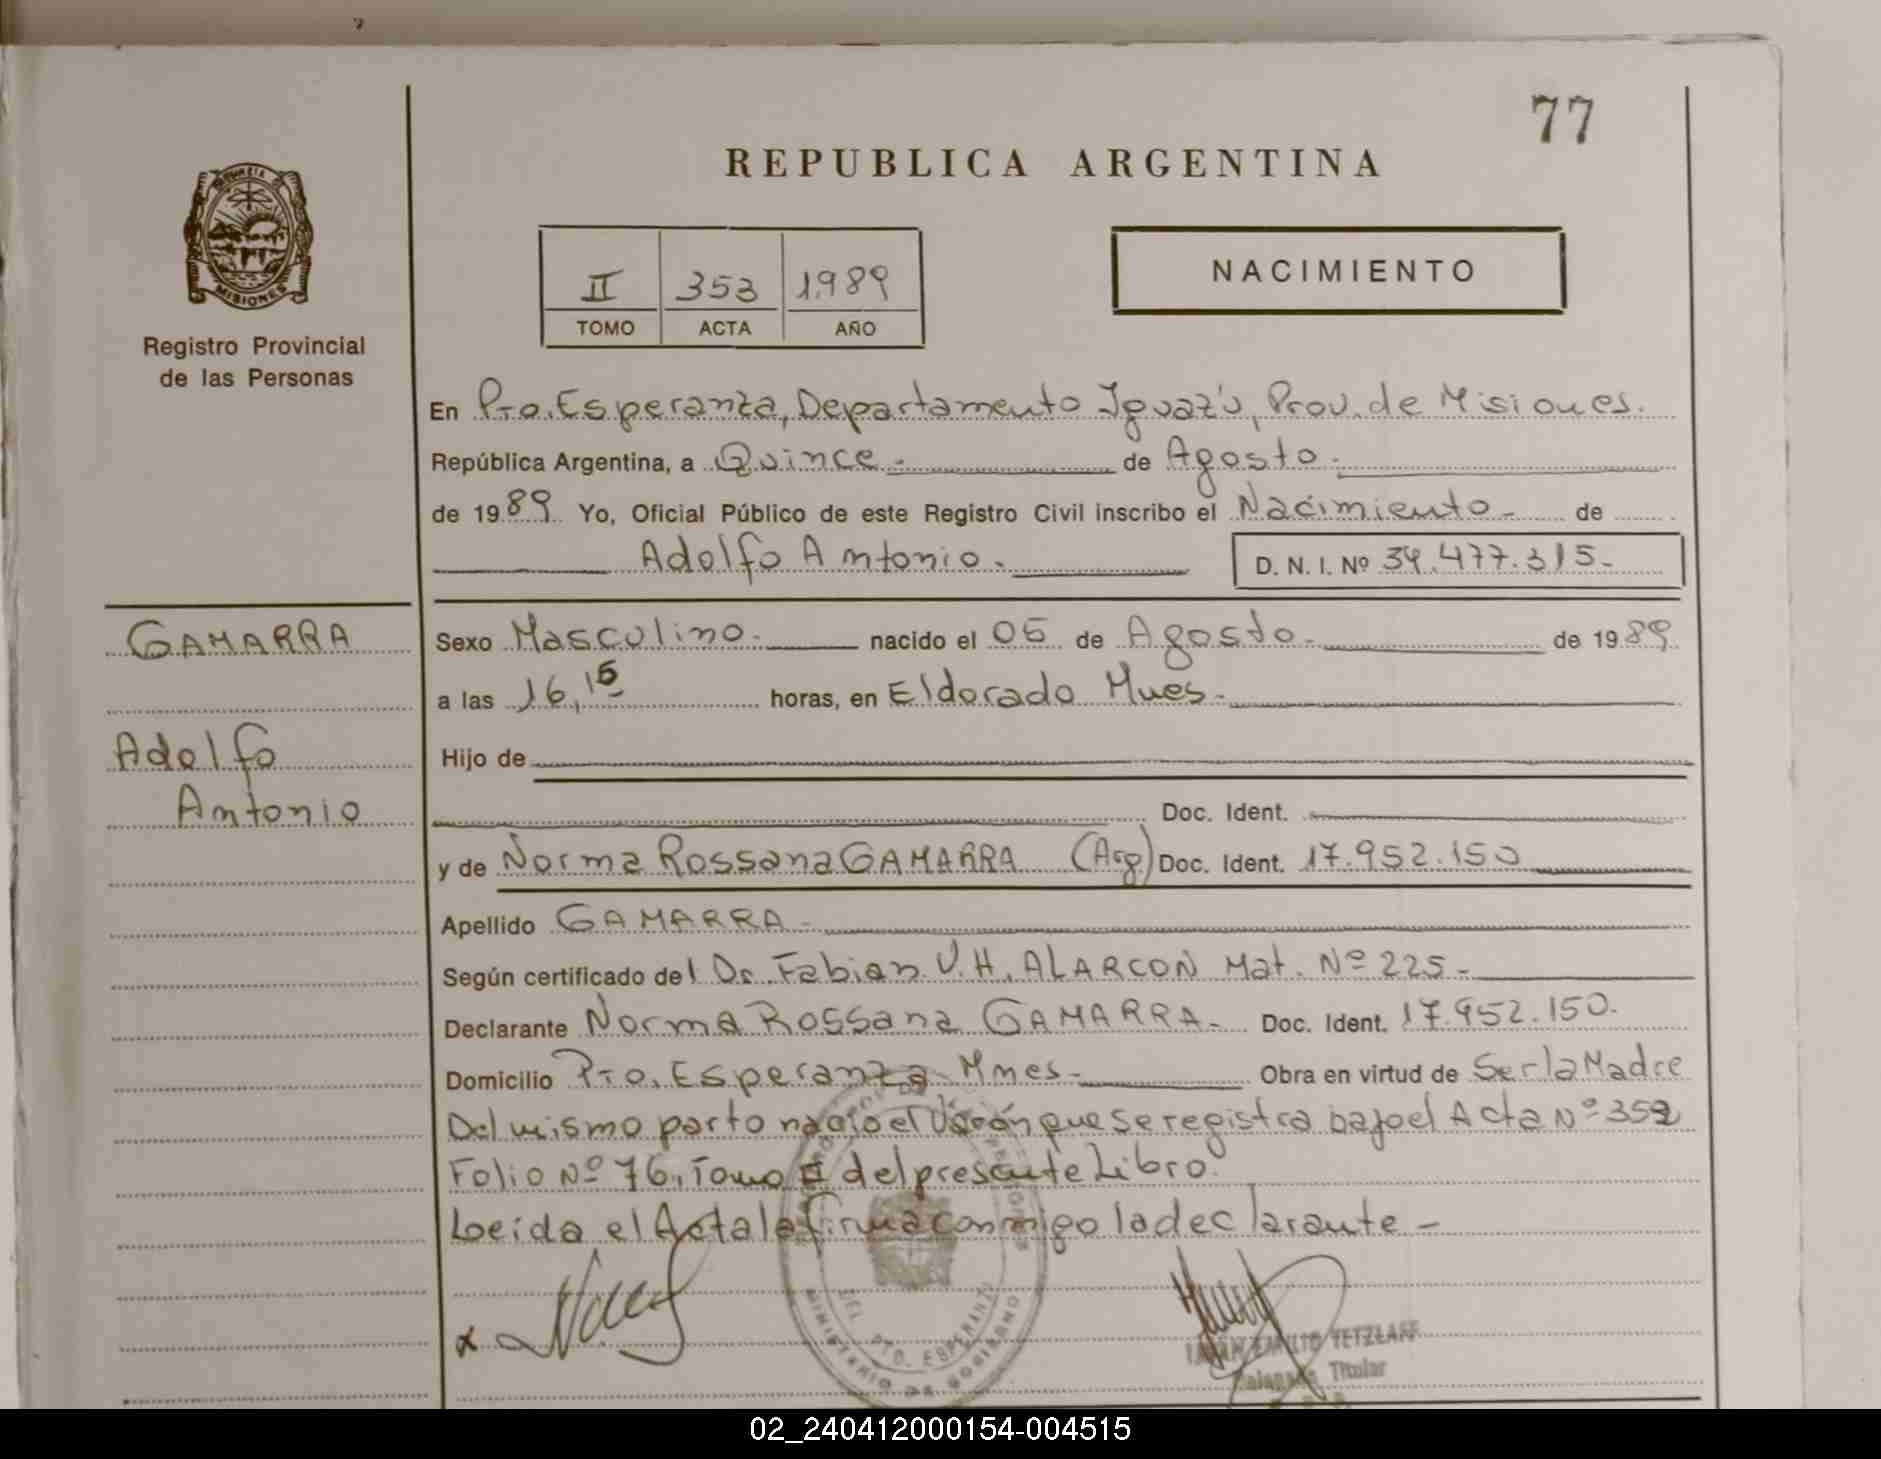 77
REPUBLICA ARGENTINA
MISIONES
Registro Provincial
de las Personas
II 353 1989
TOMO ACTA AÑO
NACIMIENTO
En Pto. Esperanza, Departamento Iguazú, Prov. de Misiones.
República Argentina, a Quince.- de Agosto.-
de 1989 Yo, Oficial Público de este Registro Civil inscribo el Nacimiento- de
Adolfo Antonio.- D. N. I. Nº 34.477.315-
GAMARRA
Adolfo
Antonio
Sexo Masculino.- nacido el 05 de Agosto.- de 1989
a las 16,15 horas, en Eldorado Mnes.-
Hijo de
Doc. Ident.
y de Norma Rossana GAMARRA (Arg) Doc. Ident. 17.952.150
Apellido GAMARRA.-
Según certificado del Dr. Fabian V.H. ALARCON Mat. Nº 225.-
Declarante Norma Rossana GAMARRA.- Doc. Ident. 17.952.150.
Domicilio Pto. Esperanza- Mnes.- Obra en virtud de Ser la Madre
Del mismo parto nacio el Varón que se registra bajo el Acta Nº 352
Folio Nº 76, Tomo II del presente Libro.
Leida el Acta la firma conmigo la declarante -
PTO. ESPERANZA
MINISTERIO DE GOBIERNO
EMILIO TETZLAFF
Titular
02_240412000154-004515